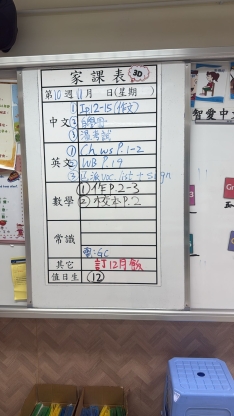 家課表 30
第10週 11月 日(星期 )
中文 ① 工p12-15(作文)
②
③ 溫考試
英文 ① Ch WS P.1-2
② WB P.19
③ 派voc list + sign
數學 (1) 作P.2-3
(2) 校本P.2
常識
電:GC
其它 訂12月飯
值日生 (12)
智愛中文